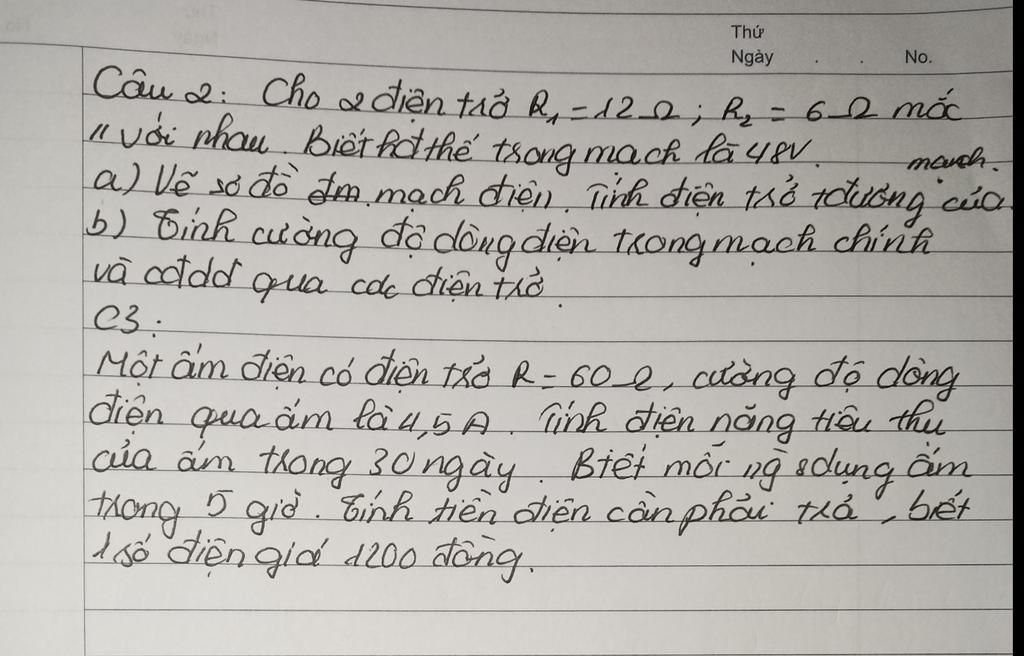 Thứ
Ngày . . No.
Câu 2: Cho 2 điện trở R₁ = 12 Ω ; R₂ = 6 Ω mắc
// với nhau. Biết hđthế trong mạch là 48V.
a) Vẽ sơ đồ mạch điện. Tính điện trở tđương của mạch.
b) Tính cường độ dòng điện trong mạch chính
và cđdđ qua các điện trở.
C3:
Một ấm điện có điện trở R = 60 Ω, cường độ dòng
điện qua ấm là 4,5 A. Tính điện năng tiêu thụ
của ấm trong 30 ngày. Biết mỗi ng sdụng ấm
trong 5 giờ. Tính tiền điện cần phải trả, biết
1 số điện giá 1200 đồng.